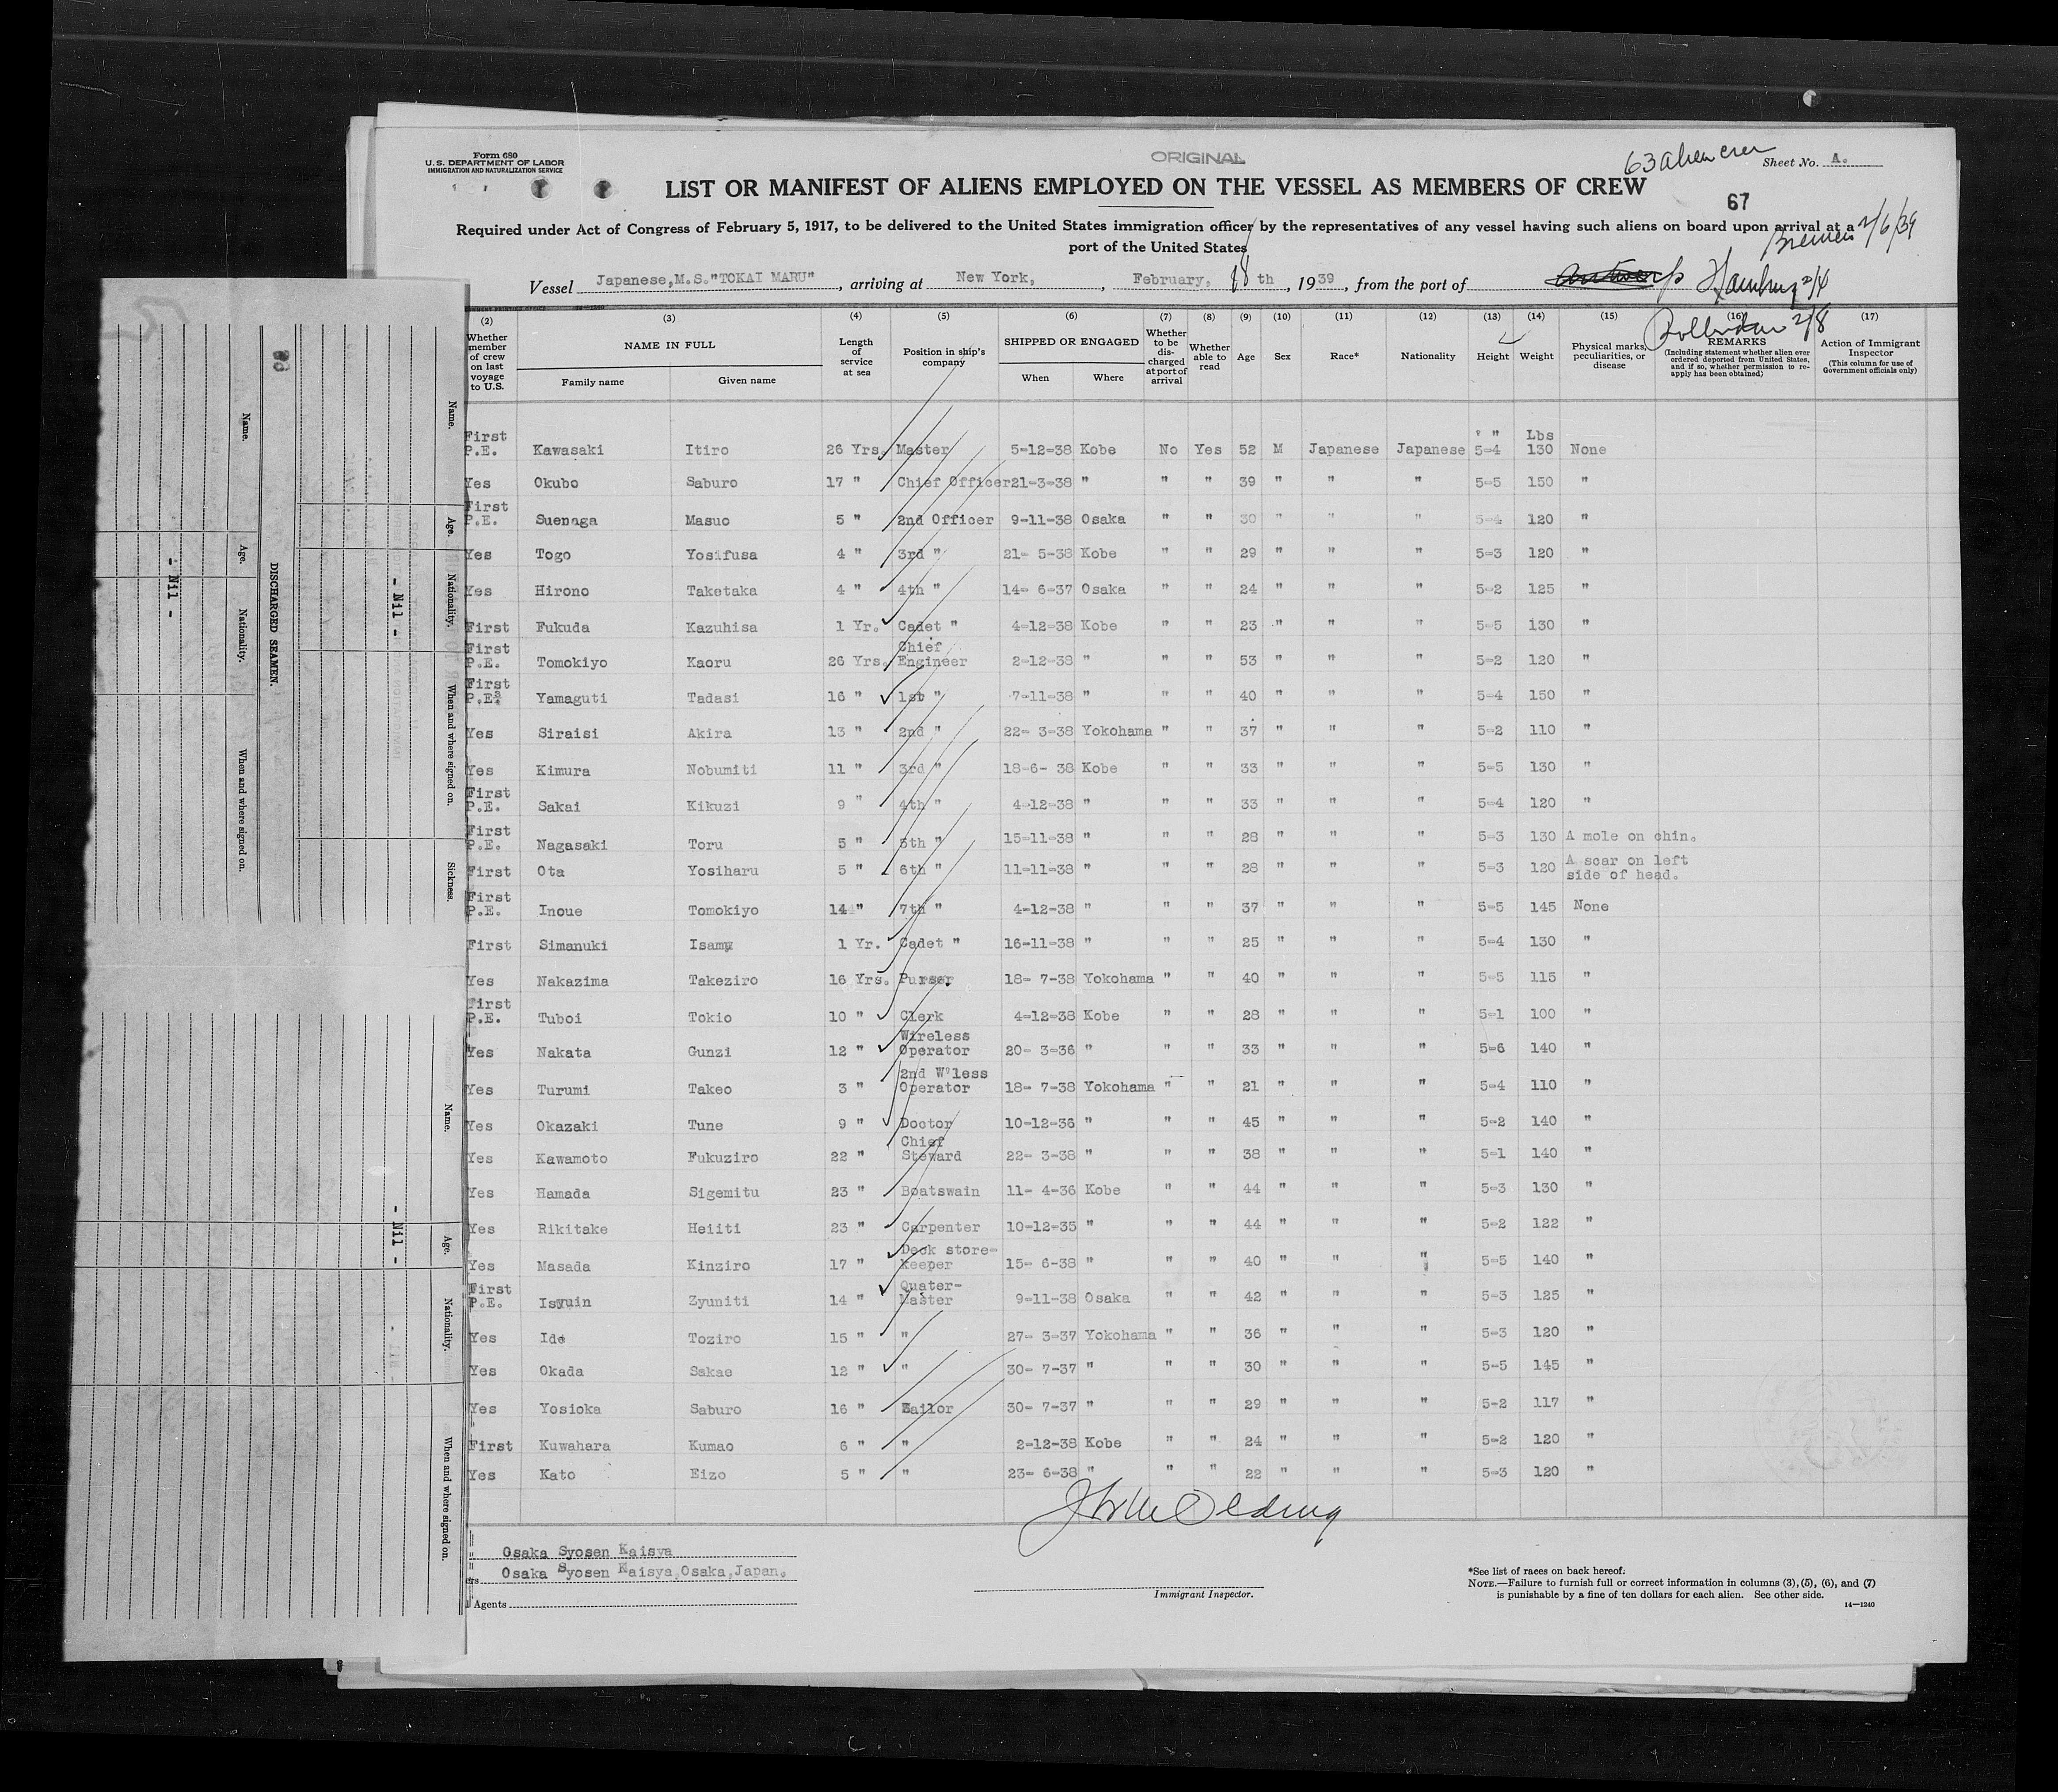 Form 680
U. S. DEPARTMENT OF LABOR
IMMIGRATION AND NATURALIZATION SERVICE
ORIGINAL
63 alien crew
Sheet No. A.
LIST OR MANIFEST OF ALIENS EMPLOYED ON THE VESSEL AS MEMBERS OF CREW
67
Required under Act of Congress of February 5, 1917, to be delivered to the United States immigration officer by the representatives of any vessel having such aliens on board upon arrival at a
port of the United States
Bremen 2/6/39
Vessel Japanese,M.S."TOKAI MARU", arriving at New York, February, 18 th, 1939, from the port of Antwerp Hamburg 2/4
Rotterdam 2/8
(2) (3) (4) (5) (6) (7) (8) (9) (10) (11) (12) (13) (14) (15) (16) (17)
Whether member of crew on last voyage to U.S.
NAME IN FULL
Family name
Given name
Length of service at sea
Position in ship's company
SHIPPED OR ENGAGED
When
Where
Whether to be discharged at port of arrival
Whether able to read
Age
Sex
Race*
Nationality
Height
Weight
Physical marks, peculiarities, or disease
REMARKS
(Including statement whether alien ever ordered deported from United States, and if so, whether permission to reapply has been obtained)
Action of Immigrant Inspector
(This column for use of Government officials only)
First P.E. Kawasaki Itiro 26 Yrs. Master 5-12-38 Kobe No Yes 52 M Japanese Japanese ' " 5-4 Lbs 130 None
Yes Okubo Saburo 17 " Chief Officer 21-3-38 " " " 39 " " " 5-5 150 "
First P.E. Suenaga Masuo 5 " 2nd Officer 9-11-38 Osaka " " 30 " " " 5-4 120 "
Yes Togo Yosifusa 4 " 3rd " 21- 5-38 Kobe " " 29 " " " 5-3 120 "
Yes Hirono Taketaka 4 " 4th " 14- 6-37 Osaka " " 24 " " " 5-2 125 "
First Fukuda Kazuhisa 1 Yr. Cadet " 4-12-38 Kobe " " 23 " " " 5-5 130 "
First P.E. Tomokiyo Kaoru 26 Yrs. Chief Engineer 2-12-38 " " " 53 " " " 5-2 120 "
First P.E. Yamaguti Tadasi 16 " 1st " 7-11-38 " " " 40 " " " 5-4 150 "
Yes Siraisi Akira 13 " 2nd " 22- 3-38 Yokohama " " 37 " " " 5-2 110 "
Yes Kimura Nobumiti 11 " 3rd " 18-6- 38 Kobe " " 33 " " " 5-5 130 "
First P.E. Sakai Kikuzi 9 " 4th " 4-12-38 " " " 33 " " " 5-4 120 "
First P.E. Nagasaki Toru 5 " 5th " 15-11-38 " " " 28 " " " 5-3 130 A mole on chin.
First Ota Yosiharu 5 " 6th " 11-11-38 " " " 28 " " " 5-3 120 A scar on left side of head.
First P.E. Inoue Tomokiyo 14 " 7th " 4-12-38 " " " 37 " " " 5-5 145 None
First Simanuki Isamu 1 Yr. Cadet " 16-11-38 " " " 25 " " " 5-4 130 "
Yes Nakazima Takeziro 16 Yrs. Purser 18- 7-38 Yokohama " " 40 " " 5-5 115 "
First P.E. Tuboi Tokio 10 " Clerk 4-12-38 Kobe " " 28 " " " 5-1 100 "
Yes Nakata Gunzi 12 " Wireless Operator 20- 3-36 " " " 33 " " " 5-6 140 "
Yes Turumi Takeo 3 " 2nd W'less Operator 18- 7-38 Yokohama " " 21 " " " 5-4 110 "
Yes Okazaki Tune 9 " Doctor 10-12-36 " " " 45 " " " 5-2 140 "
Yes Kawamoto Fukuziro 22 " Chief Steward 22- 3-38 " " " 38 " " " 5-1 140 "
Yes Hamada Sigemitu 23 " Boatswain 11- 4-36 Kobe " " 44 " " " 5-3 130 "
Yes Rikitake Heiiti 23 " Carpenter 10-12-35 " " " 44 " " " 5-2 122 "
Yes Masada Kinziro 17 " Deck store-keeper 15- 6-38 " " " 40 " " " 5-5 140 "
First P.E. Isyuin Zyuniti 14 " Quater-Master 9-11-38 Osaka " " 42 " " " 5-3 125 "
Yes Ide Toziro 15 " " 27- 3-37 Yokohama " " 36 " " " 5-3 120 "
Yes Okada Sakae 12 " " 30- 7-37 " " " 30 " " " 5-5 145 "
Yes Yosioka Saburo 16 " Sailor 30- 7-37 " " " 29 " " " 5-2 117 "
First Kuwahara Kumao 6 " " 2-12-38 Kobe " " 24 " " " 5-2 120 "
Yes Kato Eizo 5 " " 23- 6-38 " " " 22 " " " 5-3 120 "
Osaka Syosen Kaisya
Osaka Syosen Kaisya,Osaka,Japan.
Agents
Immigrant Inspector.
*See list of races on back hereof.
NOTE.—Failure to furnish full or correct information in columns (3), (5), (6), and (7)
is punishable by a fine of ten dollars for each alien. See other side.
14—1240
Name. Age. Nationality. When and where signed on. Sickness.
- Nil -
DISCHARGED SEAMEN.
Name. Age. Nationality. When and where signed on.
- Nil -
Name. Age. Nationality. When and where signed on.
- Nil -